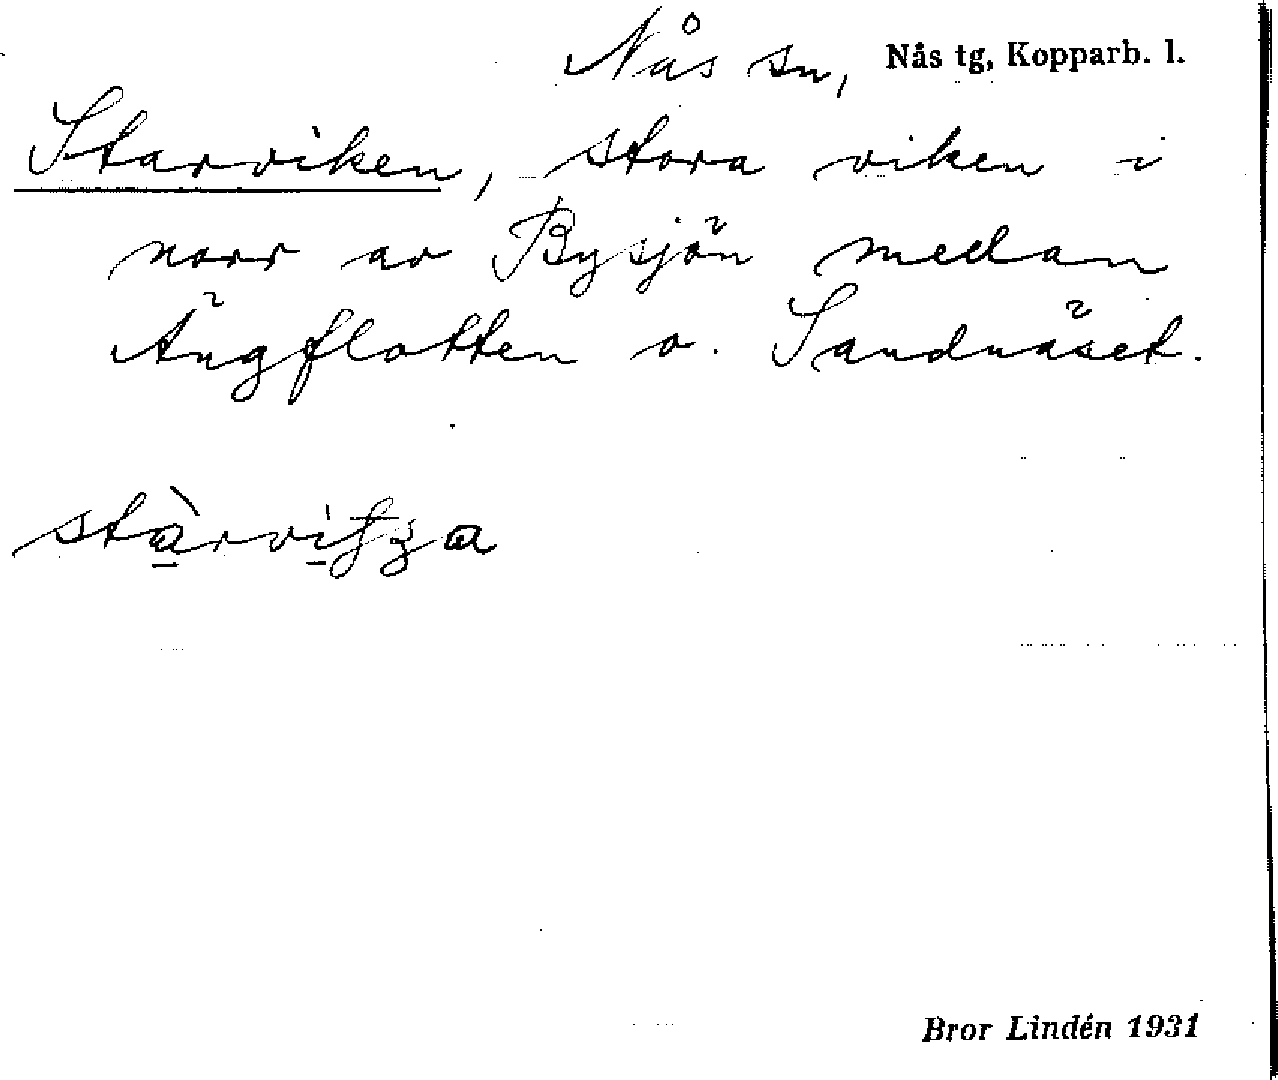 Nås sn, Nås tg, Kopparb. l.
Starviken, stora viken i
norr av Bysjön medan
Ängflotten o. Sandnäset.
Bror Lindén 1931